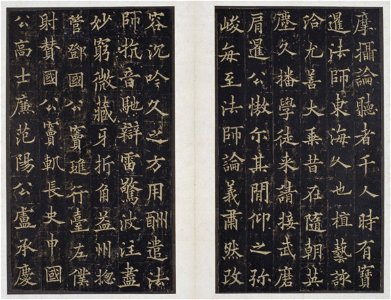 摩攝論聽者千人時有寶
暹法師東海人也殖藝該
洽尤善大乘昔在隨朝英
塵久播學徒來請接武磨
肩暹公傲尔其間仰之弥
峻每至法師論義肅然改
容沉吟久之方用酬遣法
師抗音馳辯雷驚波注盡
妙窮微藏牙折角益州揔
管鄧國公竇璡行臺左僕
射贊國公竇軌長史申國
公高士廉范陽公盧承慶